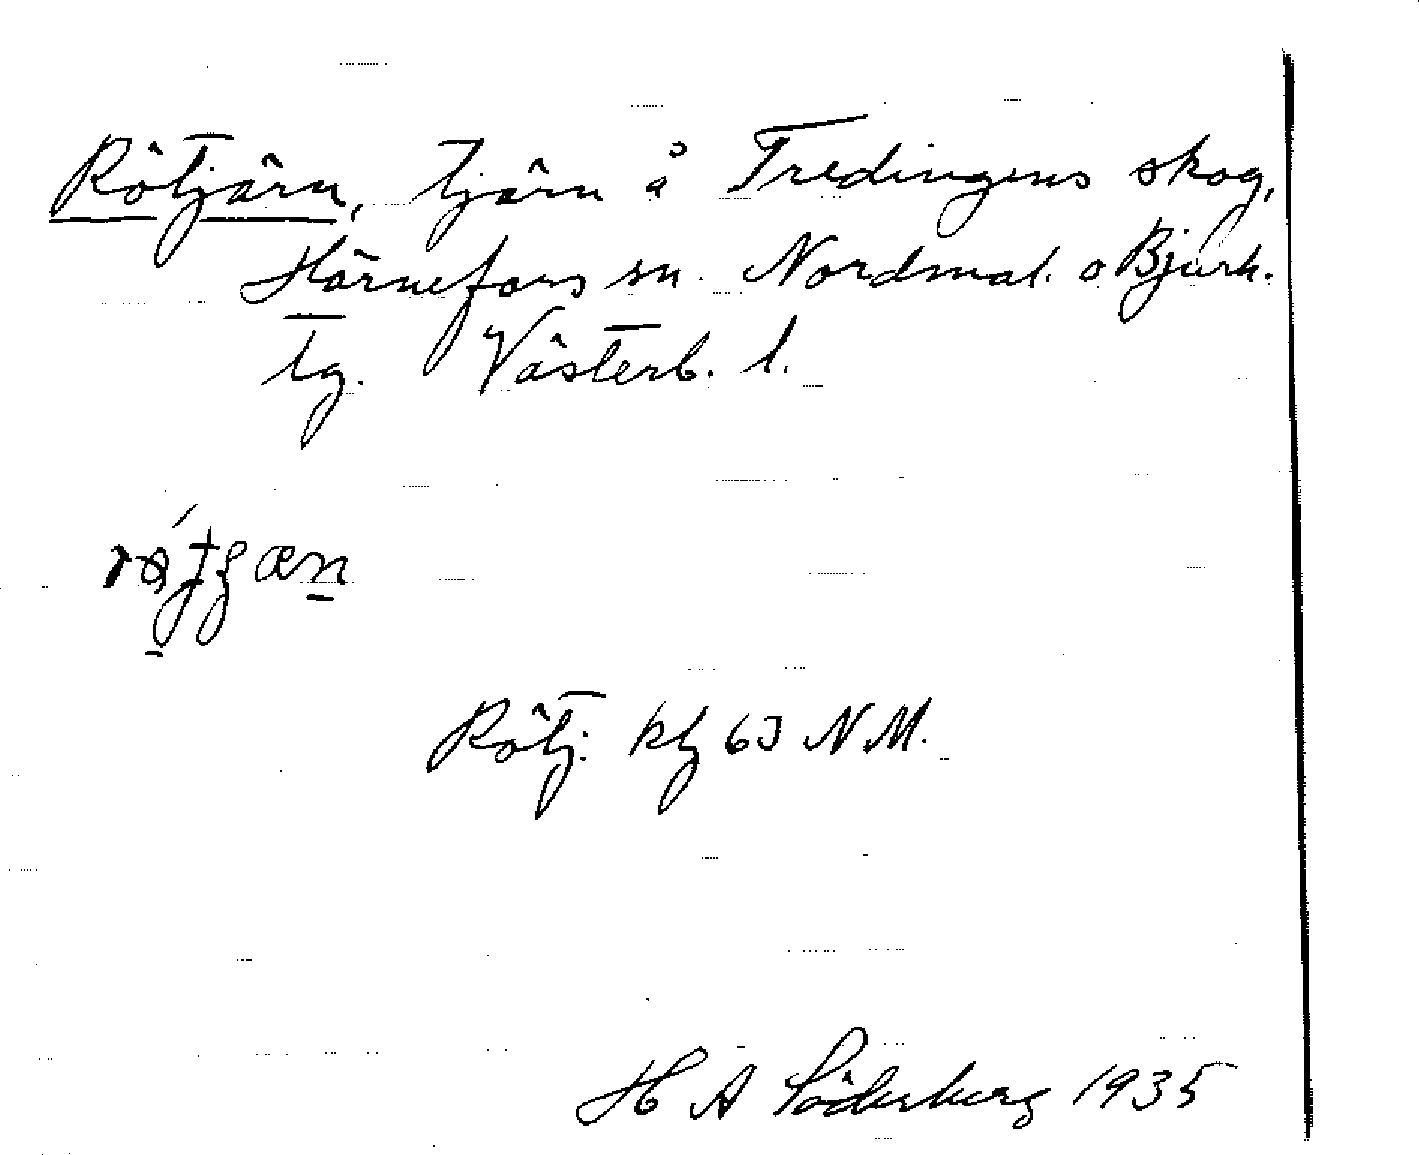 Rötjärn, tjärn å Tredingens skog,
Hörnefors sn. Nordmal. o Bjurh.
tg. Västerb. l.
Rötj. kbl 63 NM.
H A Söderberg 1935